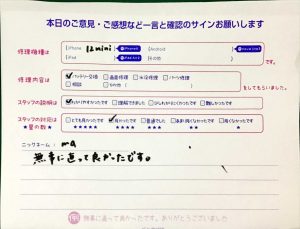 本日のご意見・ご感想など一言と確認のサインお願いします
修理機種は
iPhone 12mini
Android
iPad
その他
修理内容は
バッテリー交換 画面修理 水没修理 パーツ修理
相談 その他
をしてもらいました。
スタッフの説明は
わかりやすかったです 理解できました 少しわかりにくかったです 難しかったです
スタッフの対応は
★星の数★
とても良かったです 良かったです 普通でした あまり良くなかったです 良くなかったです
★★★★★ ★★★★ ★★★ ★★ ★
ニックネーム: ma
無事に直って良かったです。
無事に直って良かったです。ありがとうございました